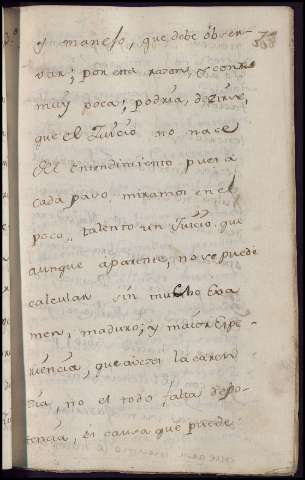 y manejo, que debe obser-
var; por esta razon, y con
muy poca; podria, decirse,
que el Juicio no nace
del entendimiento pues a
cada paso miramos en el
poco, talento un Juicio, que
aunque aparente, no se puede
calcular sin mucho Exa
men, maduro; y maior Expe-
riencia, que a veces la caren
cia, no el todo, falta de po-
tencia, es causa que puede